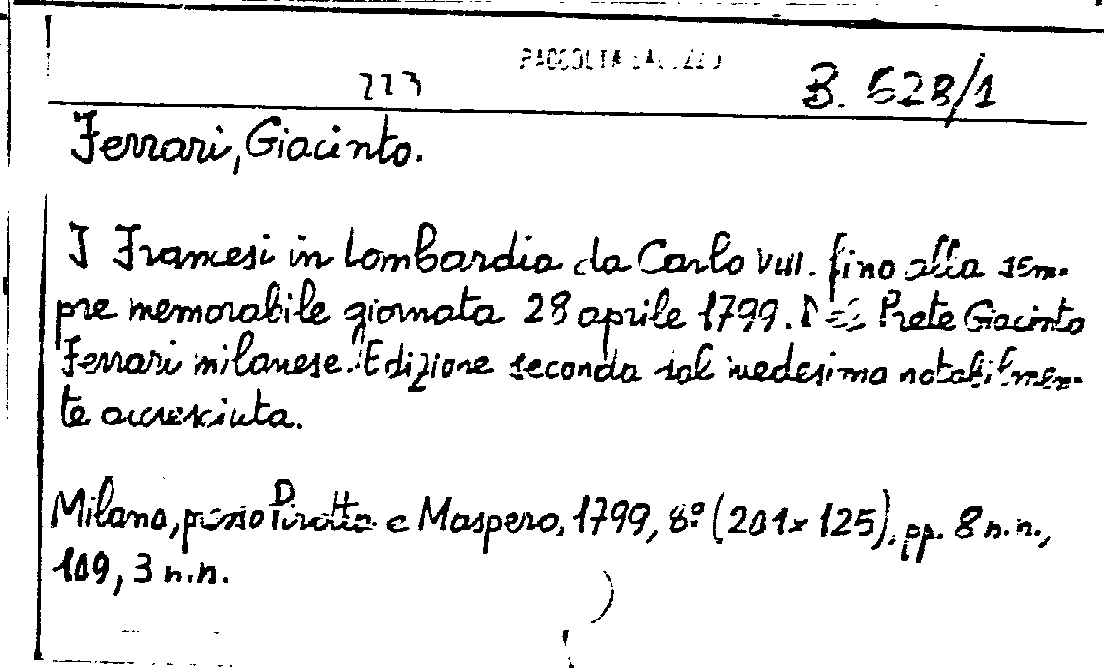 RACCOLTA
223 B. 528/1
Ferrari, Giacinto.
I Francesi in Lombardia da Carlo VIII. fino alla sem-
pre memorabile giornata 28 aprile 1799. Prete Giacinto
Ferrari milanese. Edizione seconda dal medesimo notabilmen-
te accresciuta.
Milano, presso Pirotta e Maspero, 1799, 8º (201x125), pp. 8 n.n.,
109, 3 n.n.